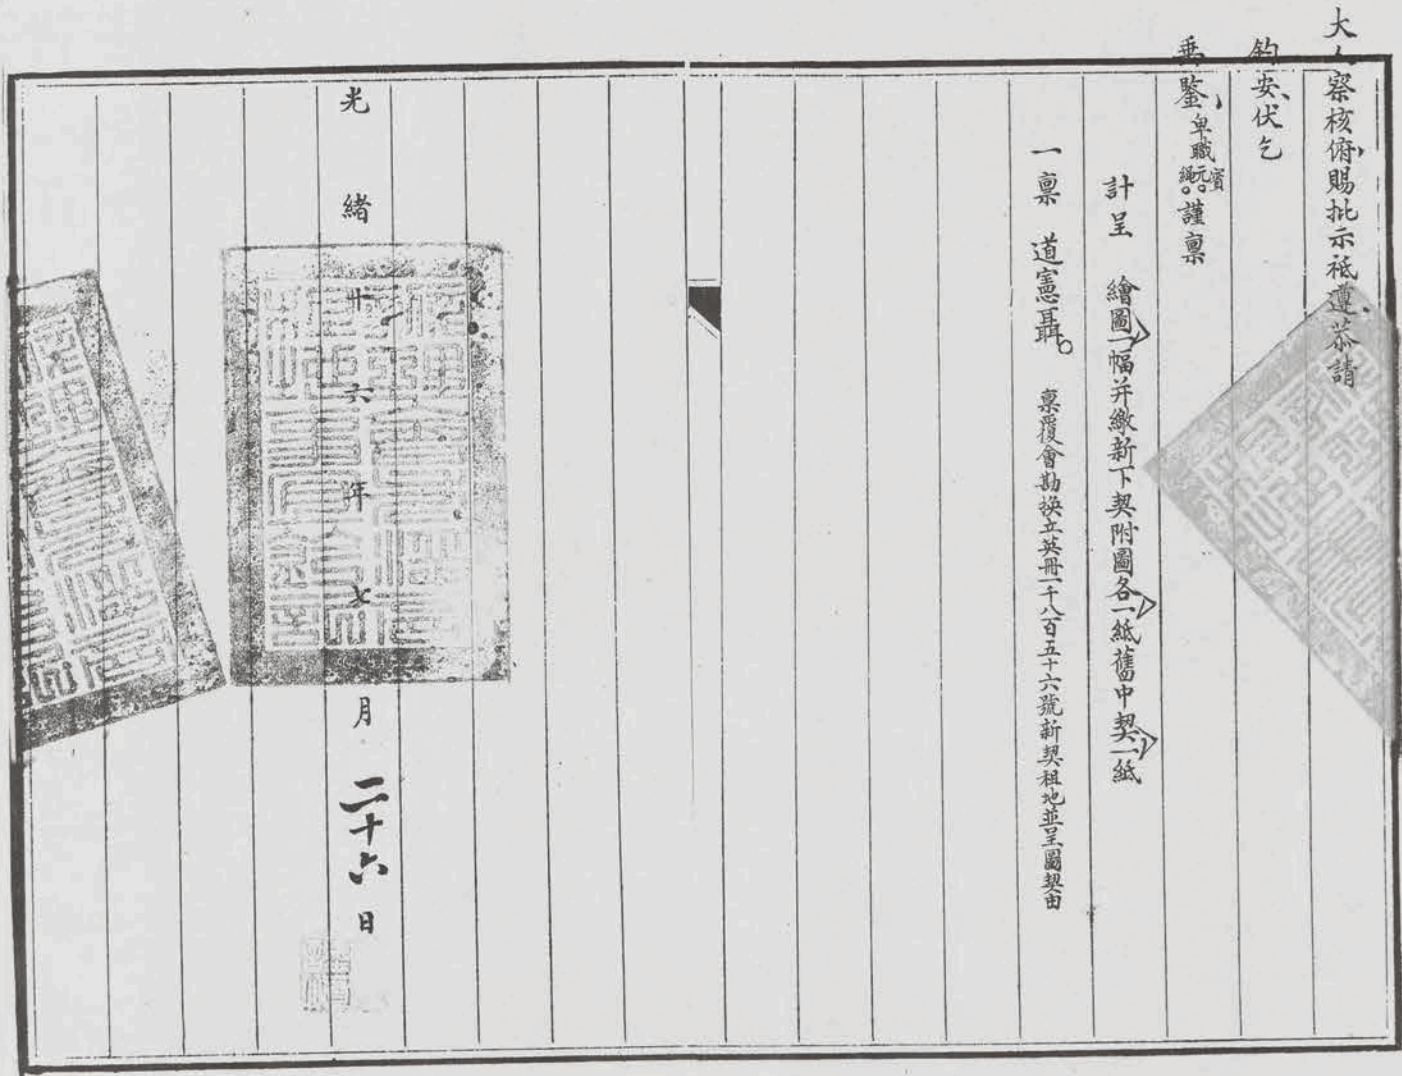 大人察核俯賜批示祗遵恭請
鈞安伏乞
垂鑒卑職寶元繩謹稟
計呈 繪圖一幅并繳新下契附圖各一紙舊中契一紙
一稟 道憲聶 稟覆會勘換立英冊一千八百五十六號新契租地並呈圖契由
光緒廿六年七月二十六日